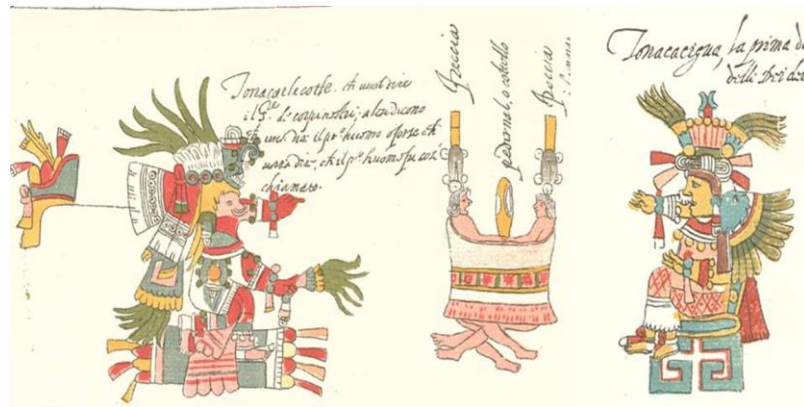 Tonacatecotle. che vuol dire
il Sre. de corpi nostri; altri dicono
che vuol dir il po. huomo o forse che
vora dir, che il po. huomo fu così
chiamato.
Freccia
pedernal, o coltello
Freccia
Tonacacigua, la prima
delli Dei